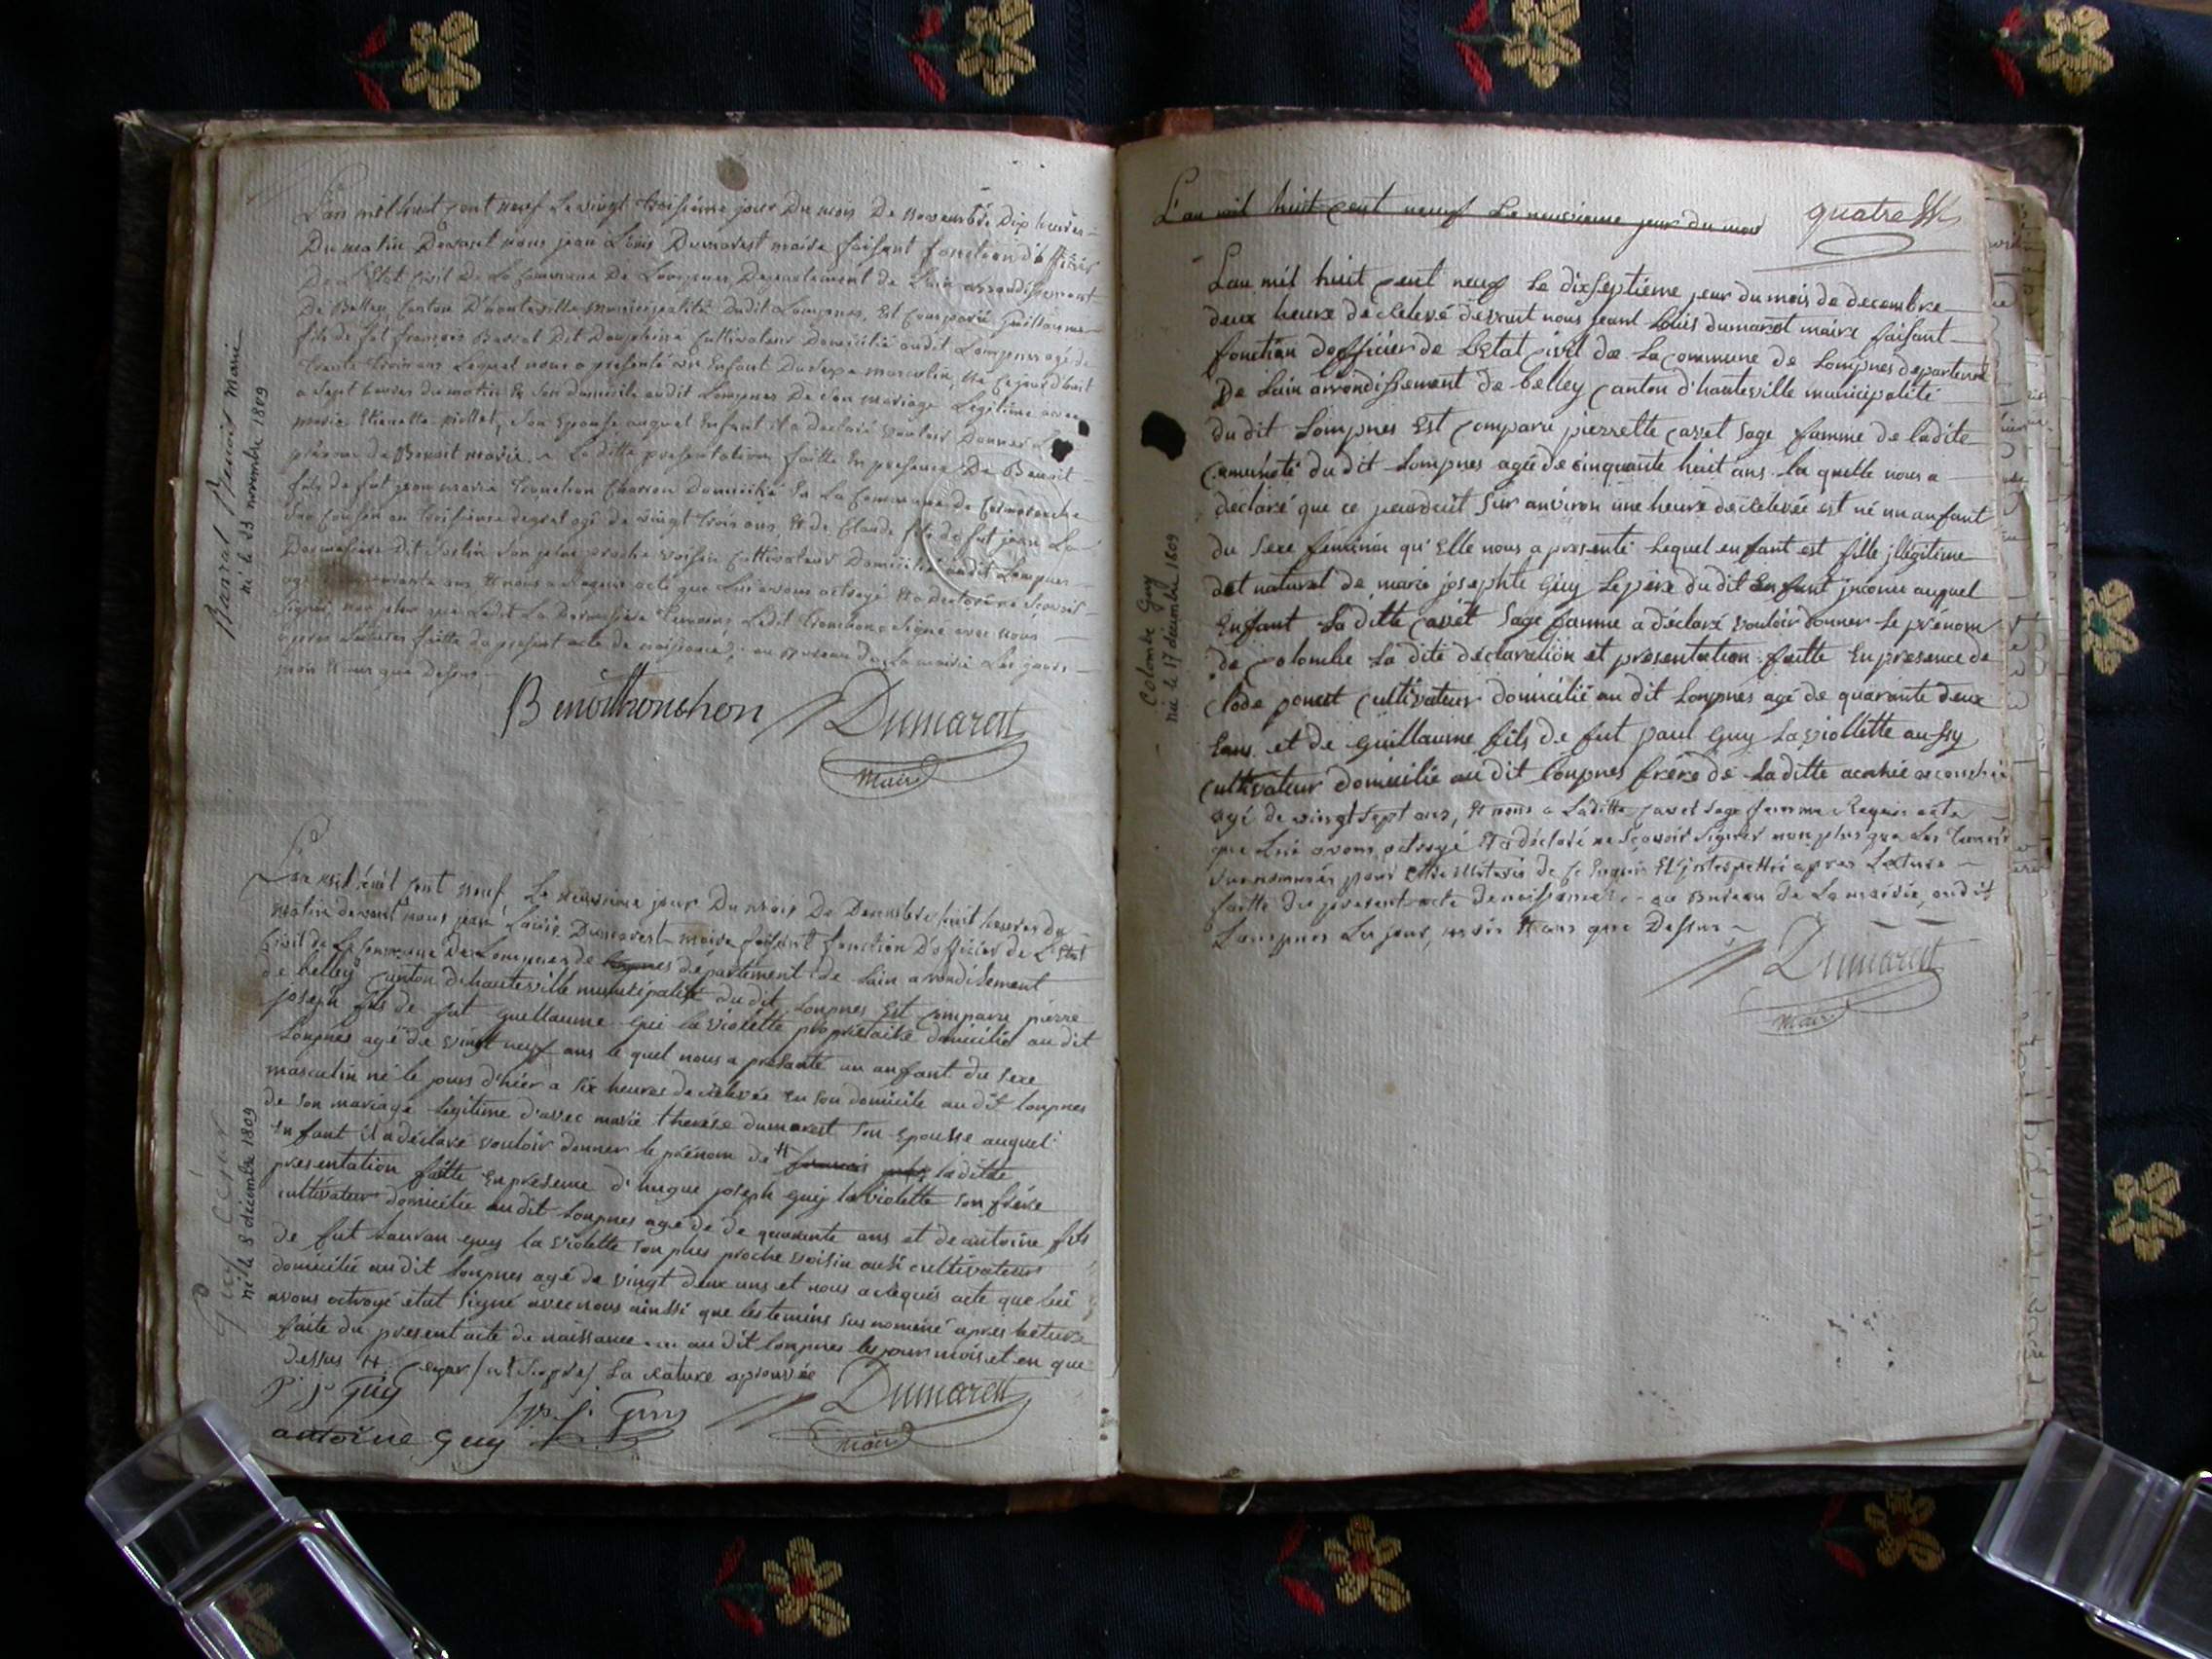 L'an mil huit cent neuf Le vingt troisième jour Du mois De novembre Dix heures
Du matin Devant nous jean Louis Dumarest maire faisant fonction d'officier
De L'Etat Civil De La Commune De Lompnes Departement de Lain arrondissement
De Belley Canton D'hauteville municipalité Dudit Lompnes, Est Comparu Guillaume
fils de fut françois Barral Dit Dauphin Cultivateur Domicilié audit Lompnes agé de
trente trois ans Lequel nous a presenté un Enfant Du Sexe masculin, né Cejourd'huit
a Sept heures du matin En Son Domicile audit Lompnes De Son mariage Legitime avec
marie Etienette Son Epouse auquel Enfant il a declaré vouloir Donner Le
prénom de Benoit marie La ditte presentation faitte En presence De Benoit
fils de fut jean marie tronchon Charron Domicilié En La Commune de Cormaranche
Son Cousin au troisième degret agé de vingt trois ans, Et de Claude fils de fut jean La
Dormasière Dit Son plus proche voisin Cultivateur Domicilié audit Lompnes
agé ans Et nous a Requis acte que Lui avons octroyé Et a declaré ne Scavoir
Signer, non plus que Ledit La Dormasière temoins, Ledit tronchon a Signé avec nous
apres Lecture faitte du present acte de naissance, au Bureau de La mairie Les jours
mois Et ans que Dessus
Barral Benoit Marie
né le 23 novembre 1809
Benoit tronchon Dumarest
Maire
L'an mil huit cent neuf, Le neuvieme jour Du mois De Decembre huit heures du
matin devant nous jean Louis Dumarest maire faisant fonction D'officier de L'Etat
Civil de La Commune De Lompnes de département de Lain arrondisement
de belley canton dhauteville municipalité du dit Lompnes Est comparu pierre
joseph fils de fut guillaume gui la violette proprietaire domicilié au dit
Lompnes agé de vingt neuf ans le quel nous a présanté un anfant du sexe
masculin né le jours d'hier a six heures de relevée en son domicile au dit lompnes
de son mariage legitime d'avec marie therése dumarest son epousse auquel
enfant il a déclaré vouloir donner le prénom de # ladite
presentation faitte en présence d'hugue joseph guy la violette son frére
cultivateur domicilie audit Lompnes agé de de quarante ans et de antoine fils
de fut guy la violette son plus proche voisin ausi cultivateur
domicilié au dit Lompnes agé de vingt deux ans et nous a requis acte que lui
avons octroyé etat signé avec nous ainssi que les temins sus nommé apres lecture
faite du present acte de naissance au dit lompnes les jour mois et en que
dessus # cezar La rature aprouvée
Guy César
né le 8 décembre 1809
p j Guy h. j. Guy Dumarest
antoine guy Maire
L'an mil huit cent neuf Le neuvieme jour du mois quatre
L'an mil huit cent neuf Le dixseptième jour du mois de decembre
deux heure de relevé devant nous jeant Louis dumarest maire faisant
fonction dofficier de Letat civil de La commune de Lompnes departement
De Lain arrondissement de belley canton d'hauteville municipalité
du dit Lompnes Est comparu pierrette cavet sage famme de ladite
comunoté du dit Lompnes agée de cinquante huit ans la quelle nous a
declaré que ce jourduit sur anviron une heure de relevée est né un anfant
du sexe féminin qu'Elle nous a presenté Lequel enfant est fille illégitime
det naturel de marie josephte Guy Le père du dit Enfant inconu auquel
Enfant La ditte cavet sage famme a déclaré vouloir donner Le prénom
de Colombe La dite déclaration et présentation faitte En présence de
clode poncet cultivateur domicilié au dit Lompnes agé de quarante deux
ans et de Guillaume fils de fut paul guy La viollette aussy
cultivateur domicilié au dit lompnes frére de la ditte acouchée
agé de vingt Sept ans, Et nous a Laditte cavet sage femme Requis acte
que Lui avons octroyé Et a déclaré ne Scavoir Signer non plus que Les temoins
surnommés pour Etre illiterés de ce Enquis Et interpellés apres Lecture
faitte du present acte de naissance au Bureau de La mairie, audit
Lompnes Les jour, mois Et ans que Dessus
Colombe Guy
née le 17 décembre 1809
Dumarest
Maire